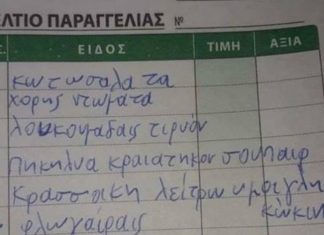 ΕΛΤΙΟ ΠΑΡΑΓΓΕΛΙΑΣ Νο
Σ. ΕΙΔΟΣ ΤΙΜΗ ΑΞΙΑ
κωτωσαλατα
χορης ντωματα
λουκουμαδαις τιρυόν
πικηλυα κραιατηκον σουπαιρ
κρασσικη λείτρω ημιγλη
κωκιν
φλωγαίραις